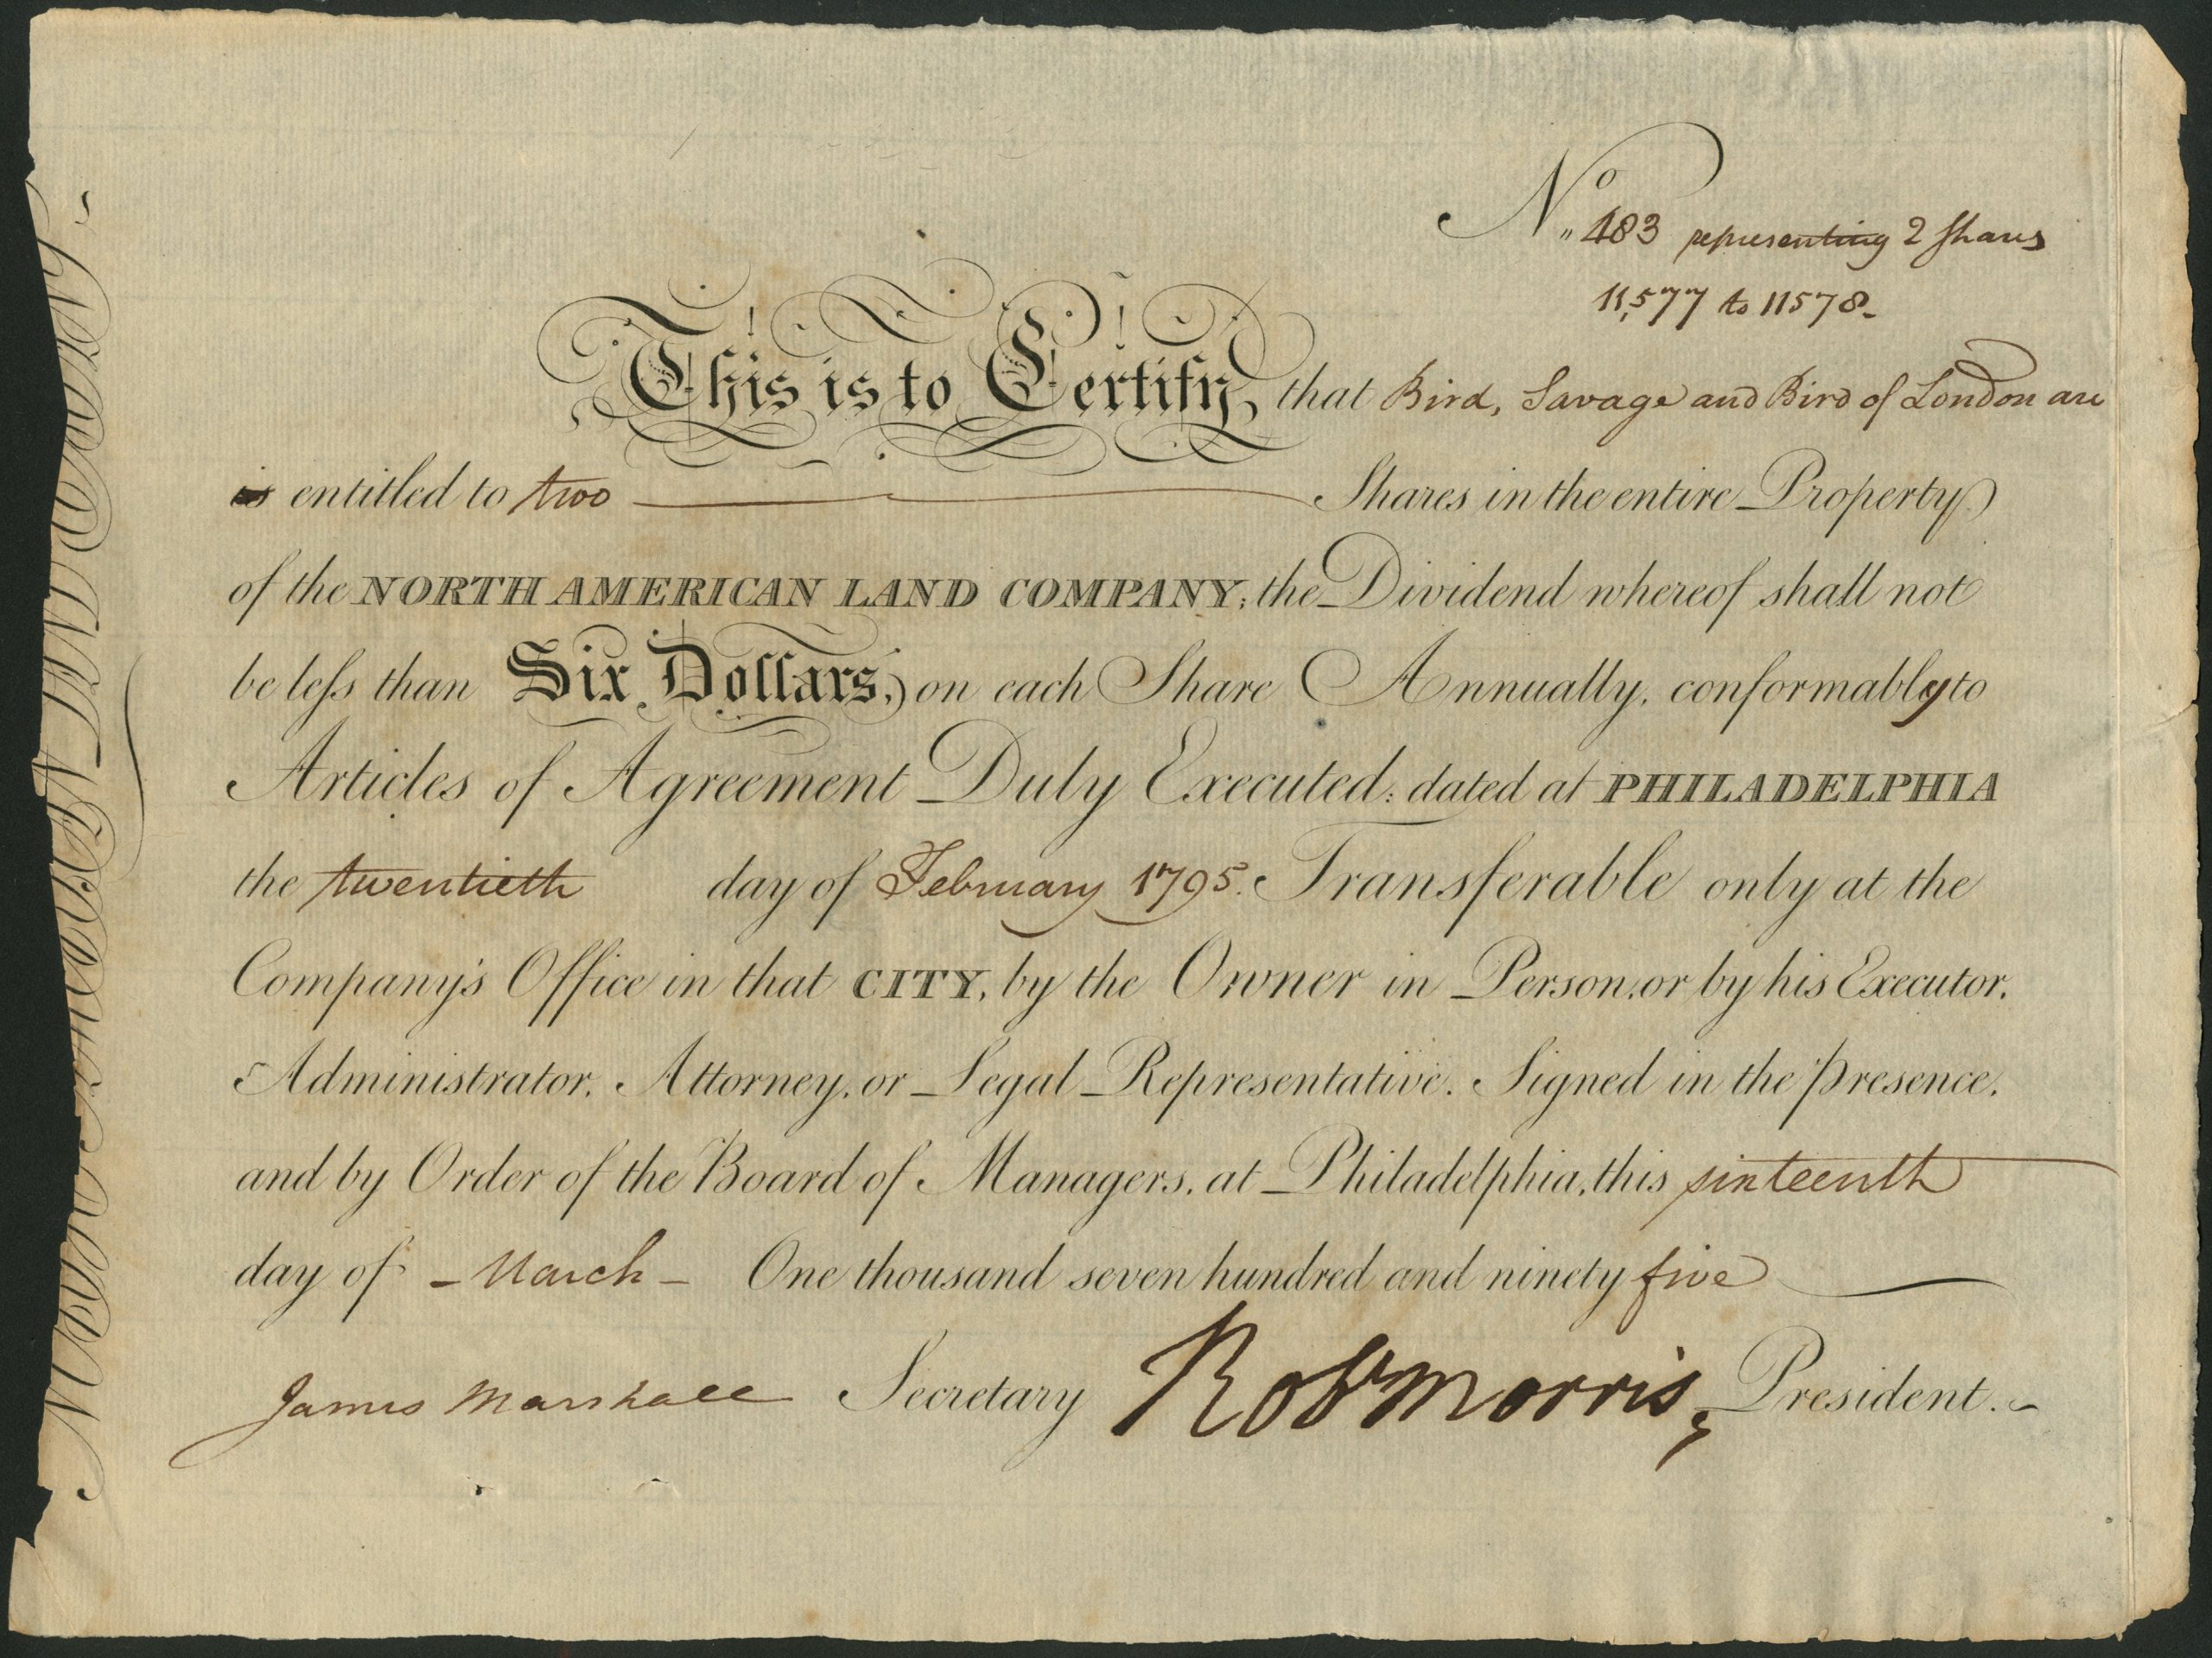 No 483 representing 2 Shares
11,577 to 11578.
This is to Certify, that Bird, Savage and Bird of London are
is entitled to two Shares in the entire Property
of the NORTH AMERICAN LAND COMPANY; the Dividend whereof shall not
be leſs than Six Dollars, on each Share Annually, conformably to
Articles of Agreement Duly Executed: dated at PHILADELPHIA
the twentieth day of February 1795. Transferable only at the
Company's Office in that CITY, by the Owner in Person, or by his Executor,
Administrator, Attorney, or Legal Representative. Signed in the presence,
and by Order of the Board of Managers, at Philadelphia, this sixteenth
day of - March - One thousand seven hundred and ninety five
James Marshall Secretary Robt Morris, President.
NORTH AMERICAN LAND COMPANY